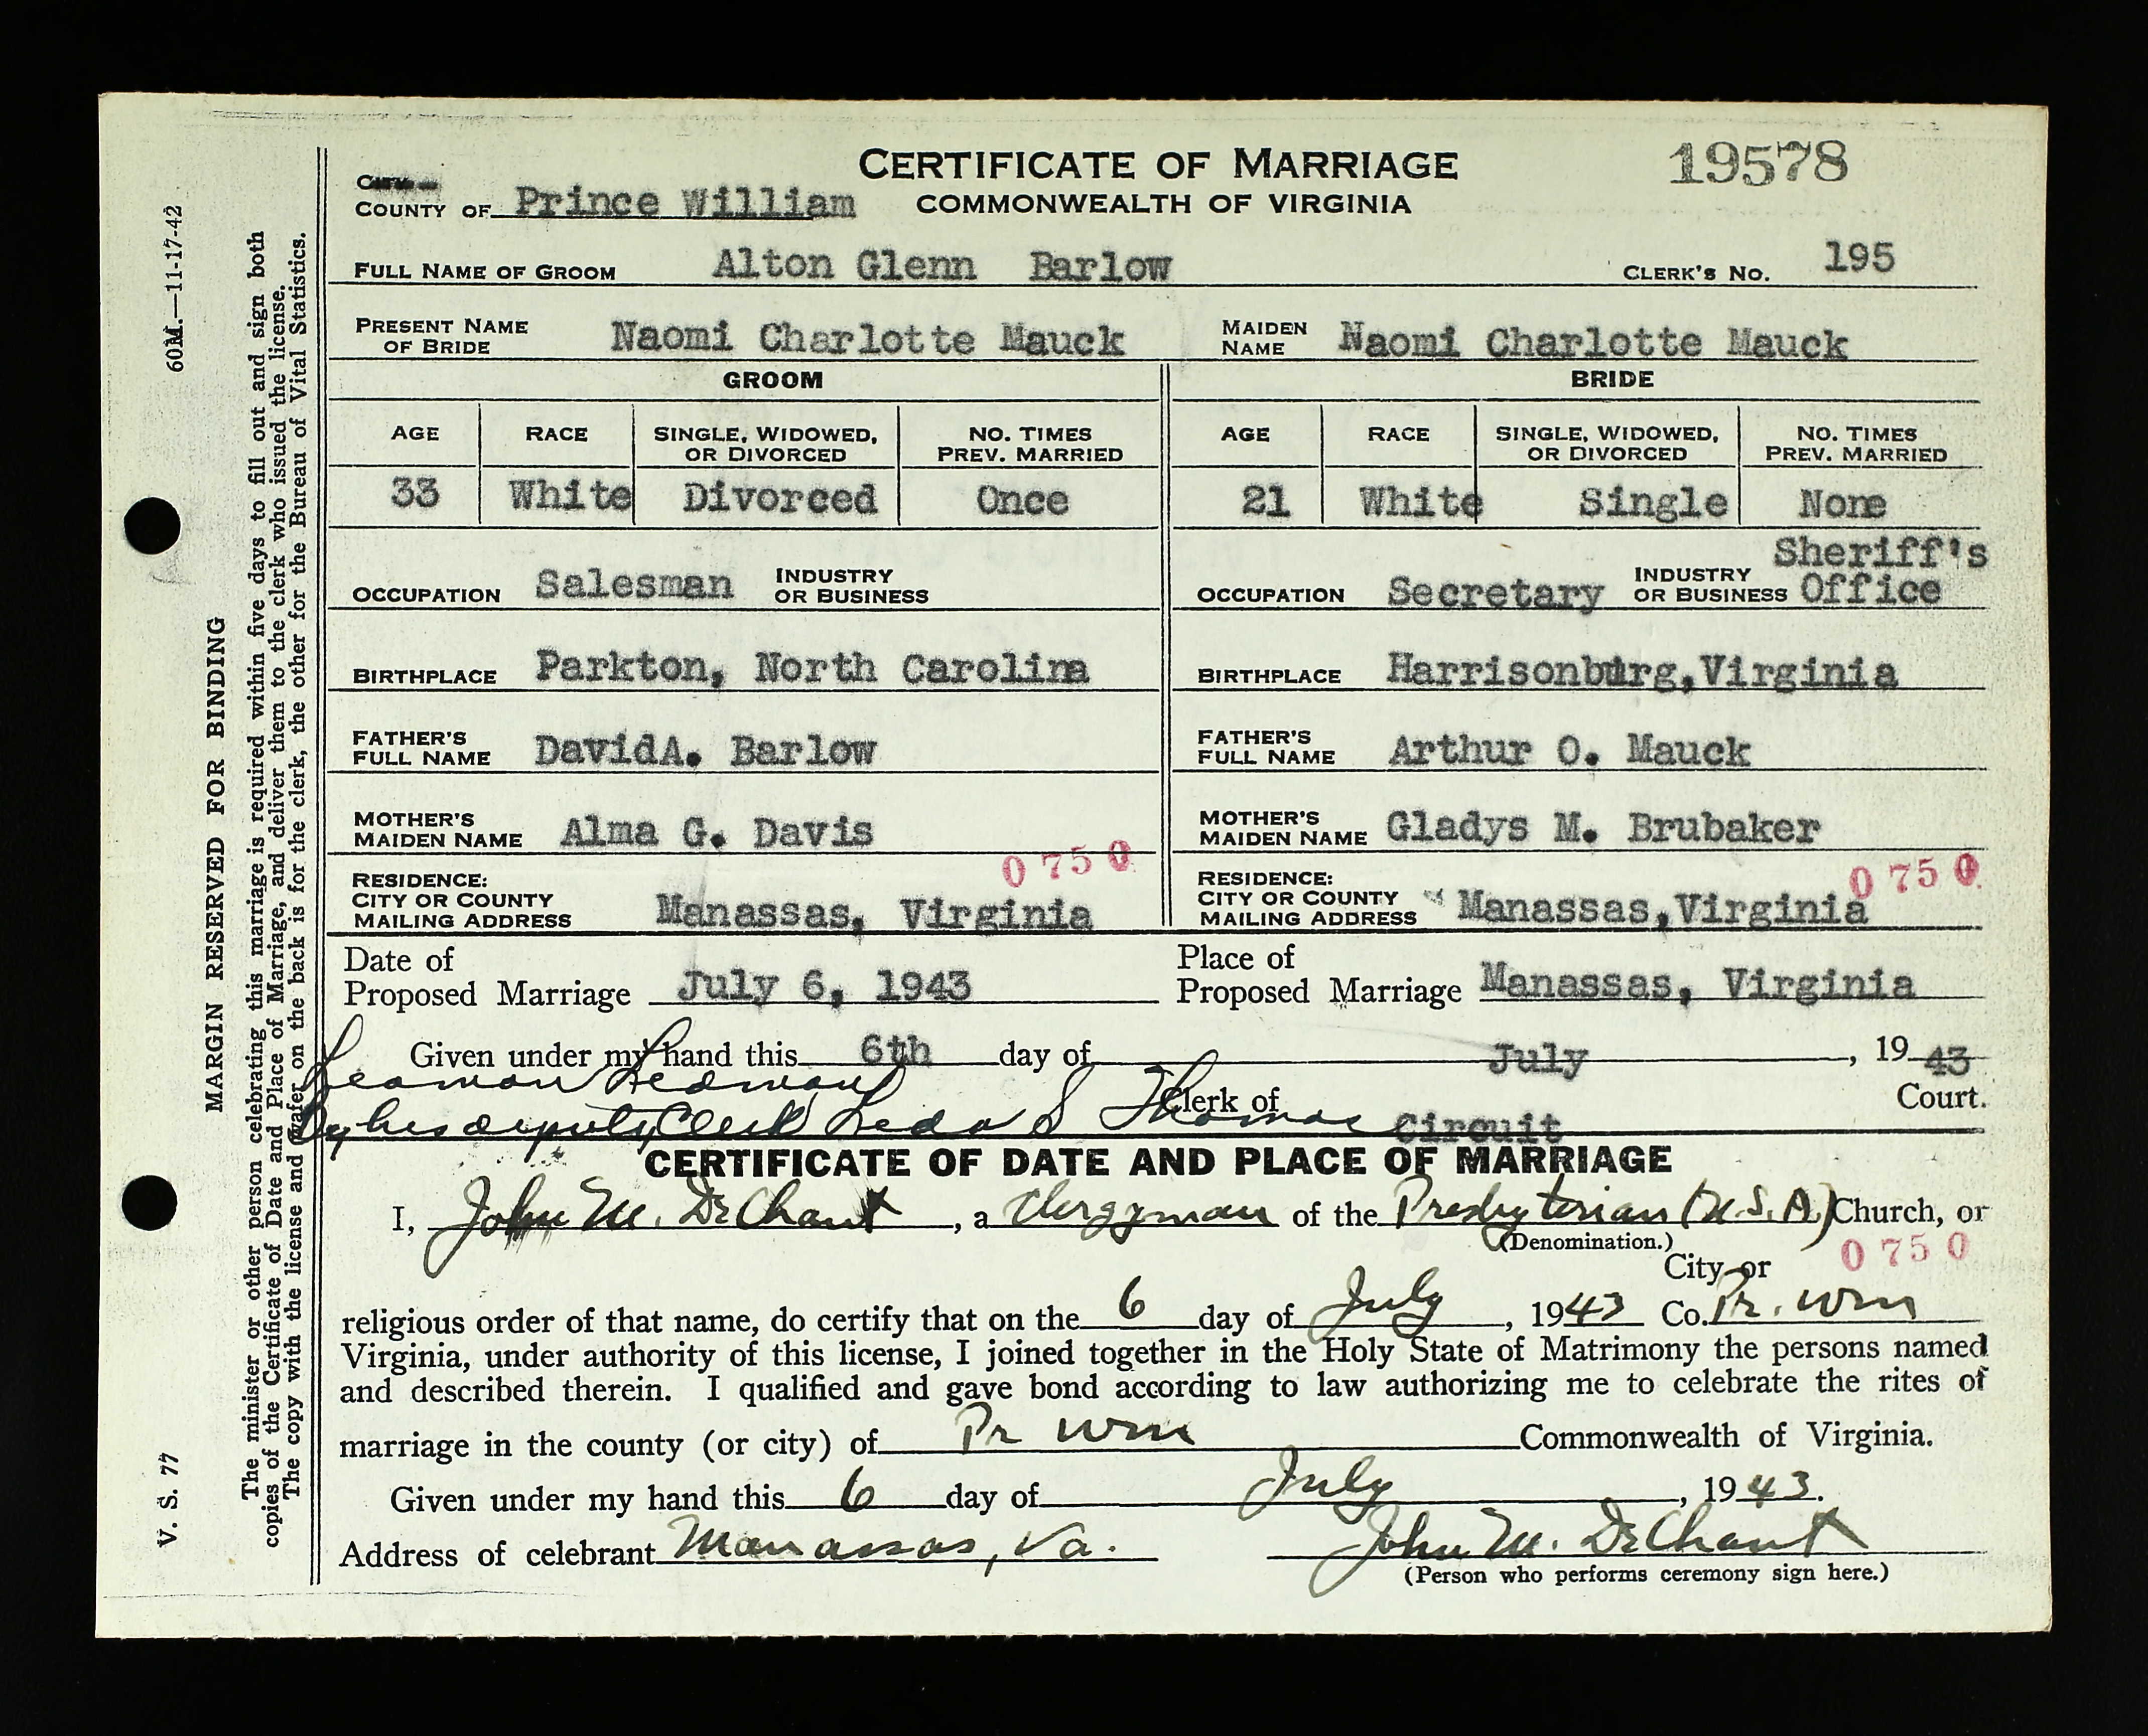 CERTIFICATE OF MARRIAGE
19578
COUNTY OF Prince William
COMMONWEALTH OF VIRGINIA
FULL NAME OF GROOM Alton Glenn Barlow CLERK'S No. 195
PRESENT NAME OF BRIDE Naomi Charlotte Mauck MAIDEN NAME Naomi Charlotte Mauck
GROOM BRIDE
AGE RACE SINGLE, WIDOWED, OR DIVORCED NO. TIMES PREV. MARRIED AGE RACE SINGLE, WIDOWED, OR DIVORCED NO. TIMES PREV. MARRIED
33 White Divorced Once 21 White Single None
OCCUPATION Salesman INDUSTRY OR BUSINESS OCCUPATION Secretary INDUSTRY OR BUSINESS Sheriff's Office
BIRTHPLACE Parkton, North Carolina BIRTHPLACE Harrisonburg,Virginia
FATHER'S FULL NAME DavidA. Barlow FATHER'S FULL NAME Arthur O. Mauck
MOTHER'S MAIDEN NAME Alma G. Davis MOTHER'S MAIDEN NAME Gladys M. Brubaker
0750 0750
RESIDENCE: CITY OR COUNTY MAILING ADDRESS Manassas, Virginia RESIDENCE: CITY OR COUNTY MAILING ADDRESS Manassas,Virginia
Date of Proposed Marriage July 6, 1943 Place of Proposed Marriage Manassas, Virginia
Given under my hand this 6th day of July, 1943
Leamon Ledman
By her deputy Clerk Leda S Thomas Clerk of Circuit Court.
CERTIFICATE OF DATE AND PLACE OF MARRIAGE
I, John M. DeChant, a Clergyman of the Presbyterian (U.S.A.) Church, or
(Denomination.)
0750
City or
religious order of that name, do certify that on the 6 day of July, 1943 Co. Pr. Wm
Virginia, under authority of this license, I joined together in the Holy State of Matrimony the persons named
and described therein. I qualified and gave bond according to law authorizing me to celebrate the rites of
marriage in the county (or city) of Pr Wm Commonwealth of Virginia.
Given under my hand this 6 day of July, 1943.
Address of celebrant Manassas, Va. John M. DeChant
(Person who performs ceremony sign here.)
60M.—11-17-42
MARGIN RESERVED FOR BINDING
V. S. 77
The minister or other person celebrating this marriage is required within five days to fill out and sign both
copies of the Certificate of Date and Place of Marriage, and deliver them to the clerk who issued the license.
The copy with the license and wafer on the back is for the clerk, the other for the Bureau of Vital Statistics.